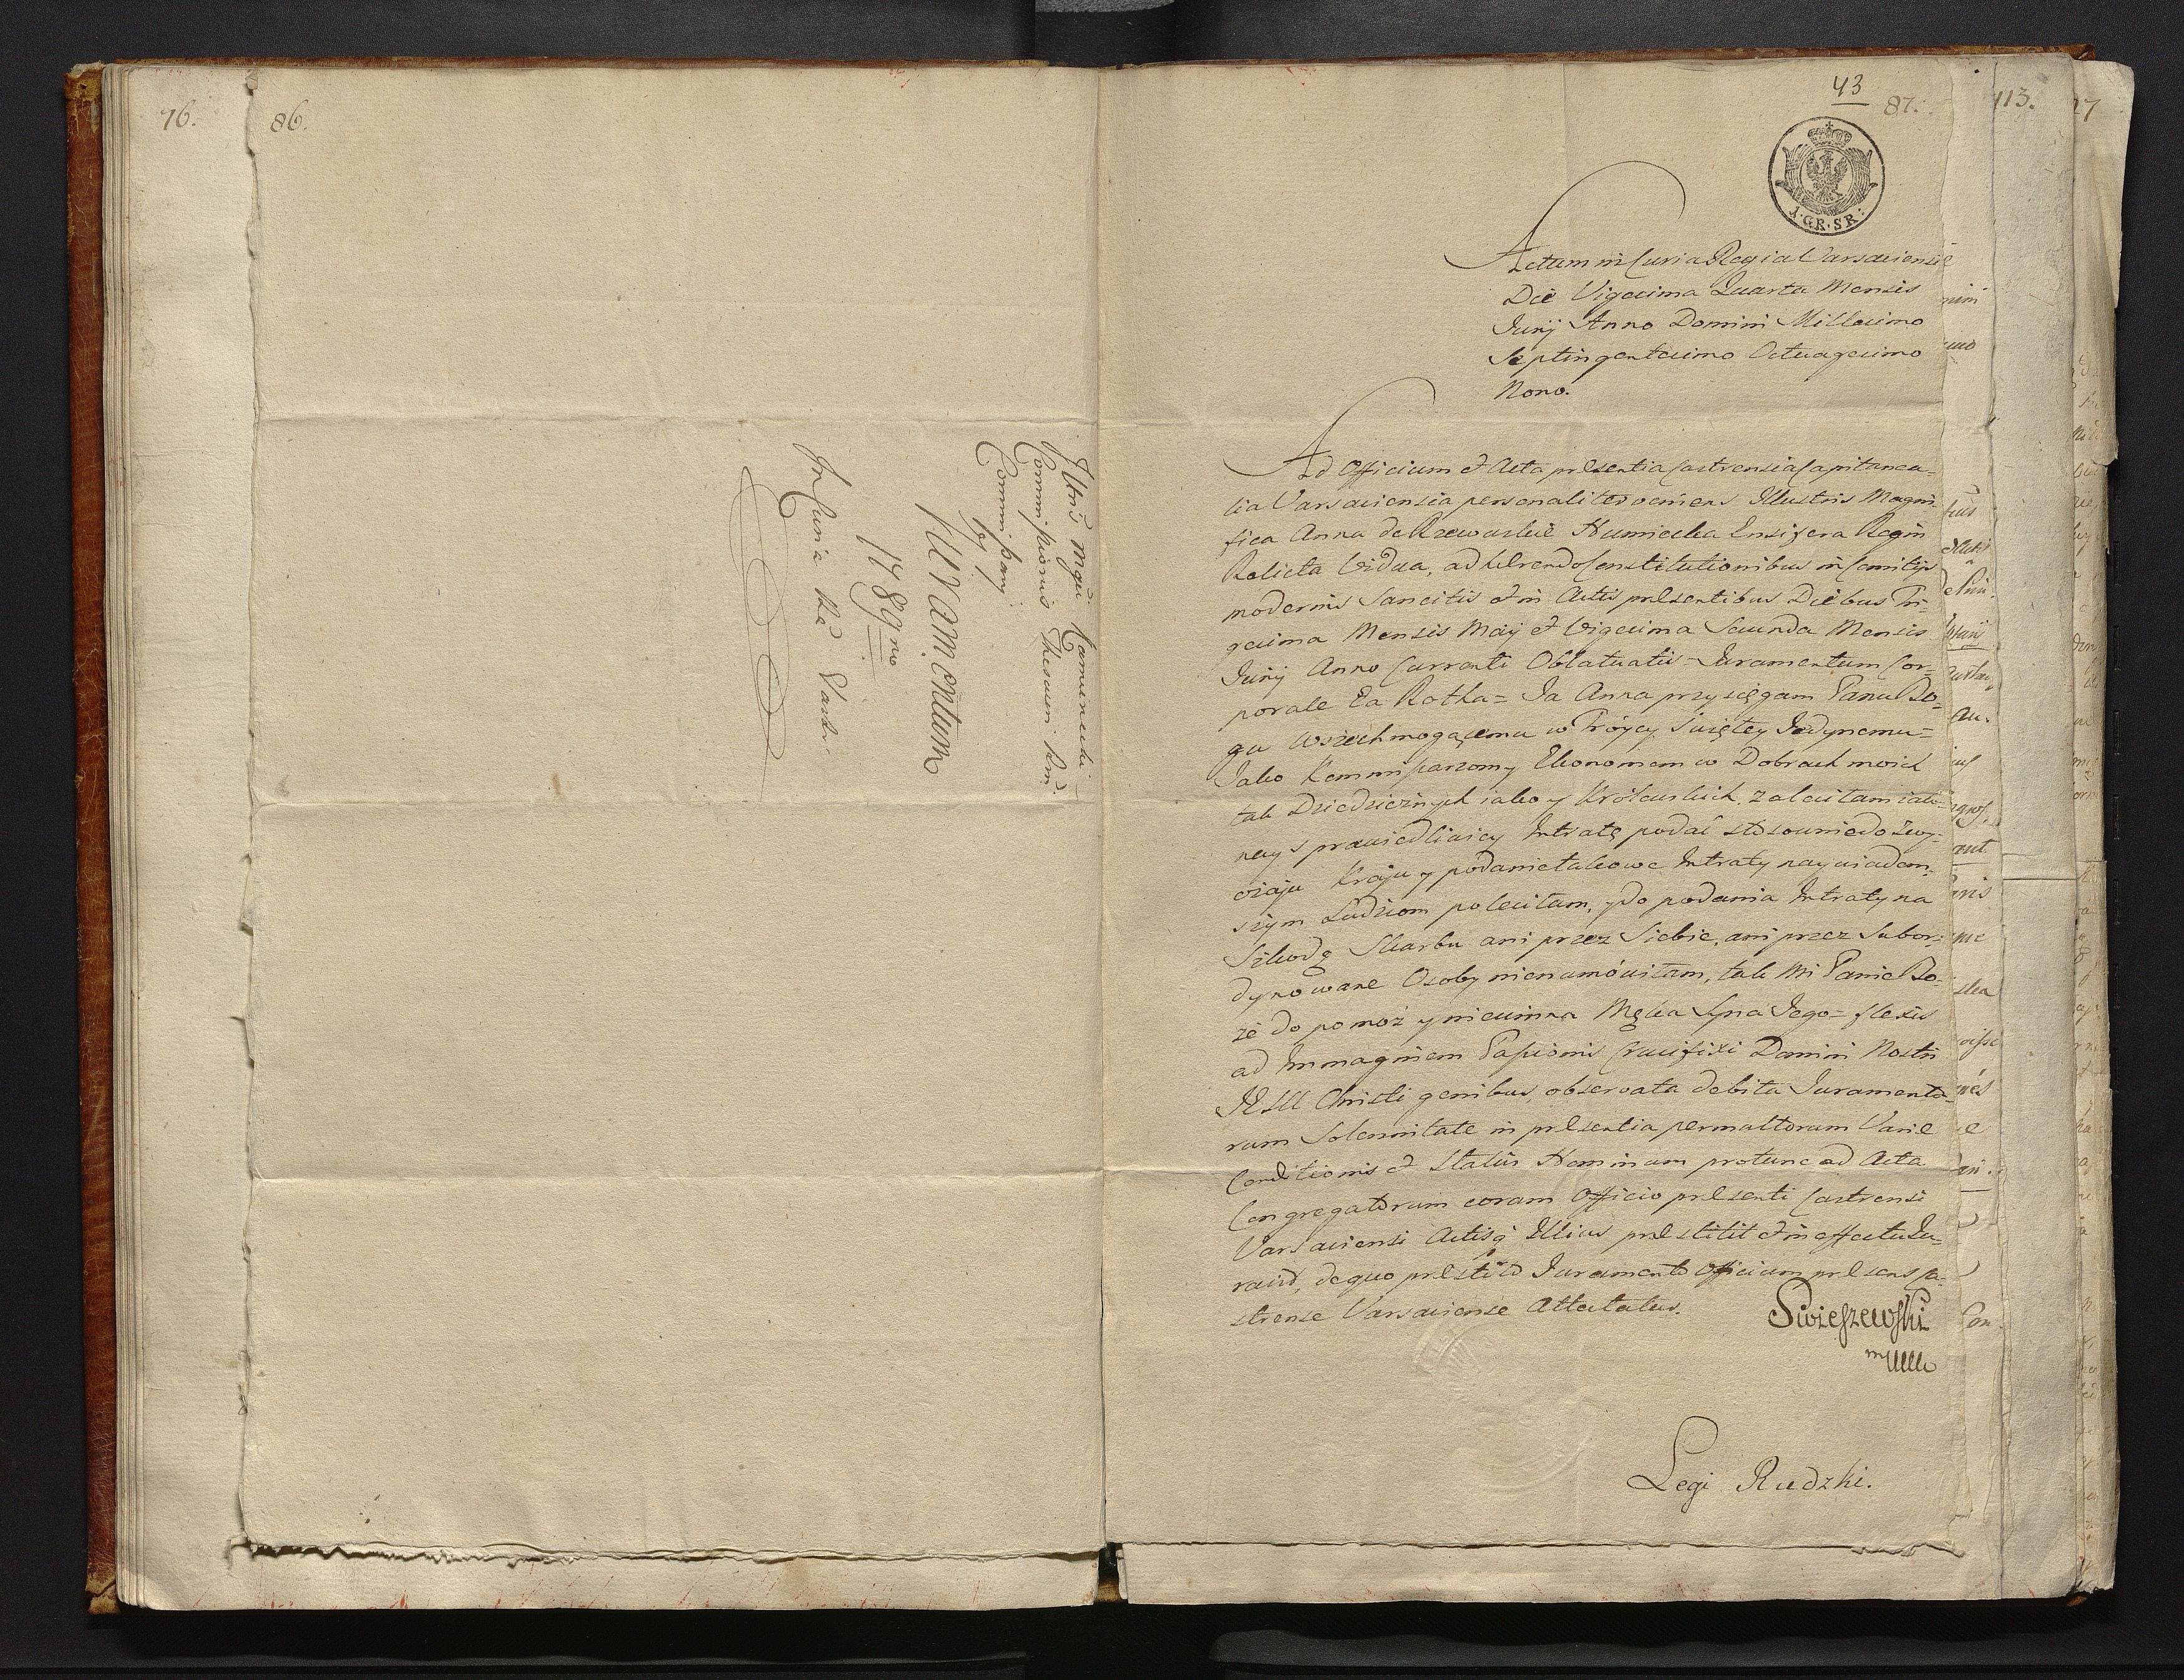 76.
86.
Illris Mgci Kamienecki
Commissionis Thesauri
Commissarij
Juramentum
1789no
In Curia
43
87.
113.
27
1. GR. SR:
Actum in Curia Regia Varsaviensi
Die Vigesima Quarta Mensis
Junij Anno Domini Millesimo
Septingentesimo Octuagesimo
Nono.
Ad Officium et Acta præsentia Castrensia Capitanea-
lia Varsaviensia personaliter veniens Illustris Magni-
fica Anna de Rzewuskie Humiecka Ensifera Regni
Relicta Vidua, adhærendo Constitutionibus in Comitijs
modernis Sancitis et in Actis præsentibus Diebus Tri-
gesima Mensis Maij et Vigesima Secunda Mensis
Junij Anno Currenti Oblatuatis = Juramentum Cor-
porale Ea Rotha = Ja Anna przysięgam Panu Bo-
gu Wszechmogącemu w Tróycy Swiętey Jedynemu =
Jako Kommissarzom y Ekonomom w Dobrach moich
tak Dziedzicznych iako y Królewskich, zaleciłam iako
nay sprawiedliwicy Intratę podać stosownie do zwy-
czaju Kraju y podanie takowe Intraty naywiadom-
szym Ludziom poleciłam, y do podania Intraty na
Szkodę Skarbu ani przez Siebie, ani przez Subor-
dynowane Osoby nienamówiłam, tak mi Panie Bo-
że do pomoż y niewinna Męka Syna Jego = flexis
ad Immaginem Passionis Crucifixi Domini Nostri
JESU Christi genibus, observata debita Juramento-
rum Solennitate in præsentia permultorum Variæ
Conditionis et Status Hominum protunc ad Acta
Congregatorum coram Officio præsenti Castrensi
Varsaviensi Actisq Illius præstitit et in effectu Ju-
ravit, de quo præstito Juramento Officium præsens Ca-
strense Varsaviense Attestatur.
Swieszewski
mpp
Legi Rudzki.